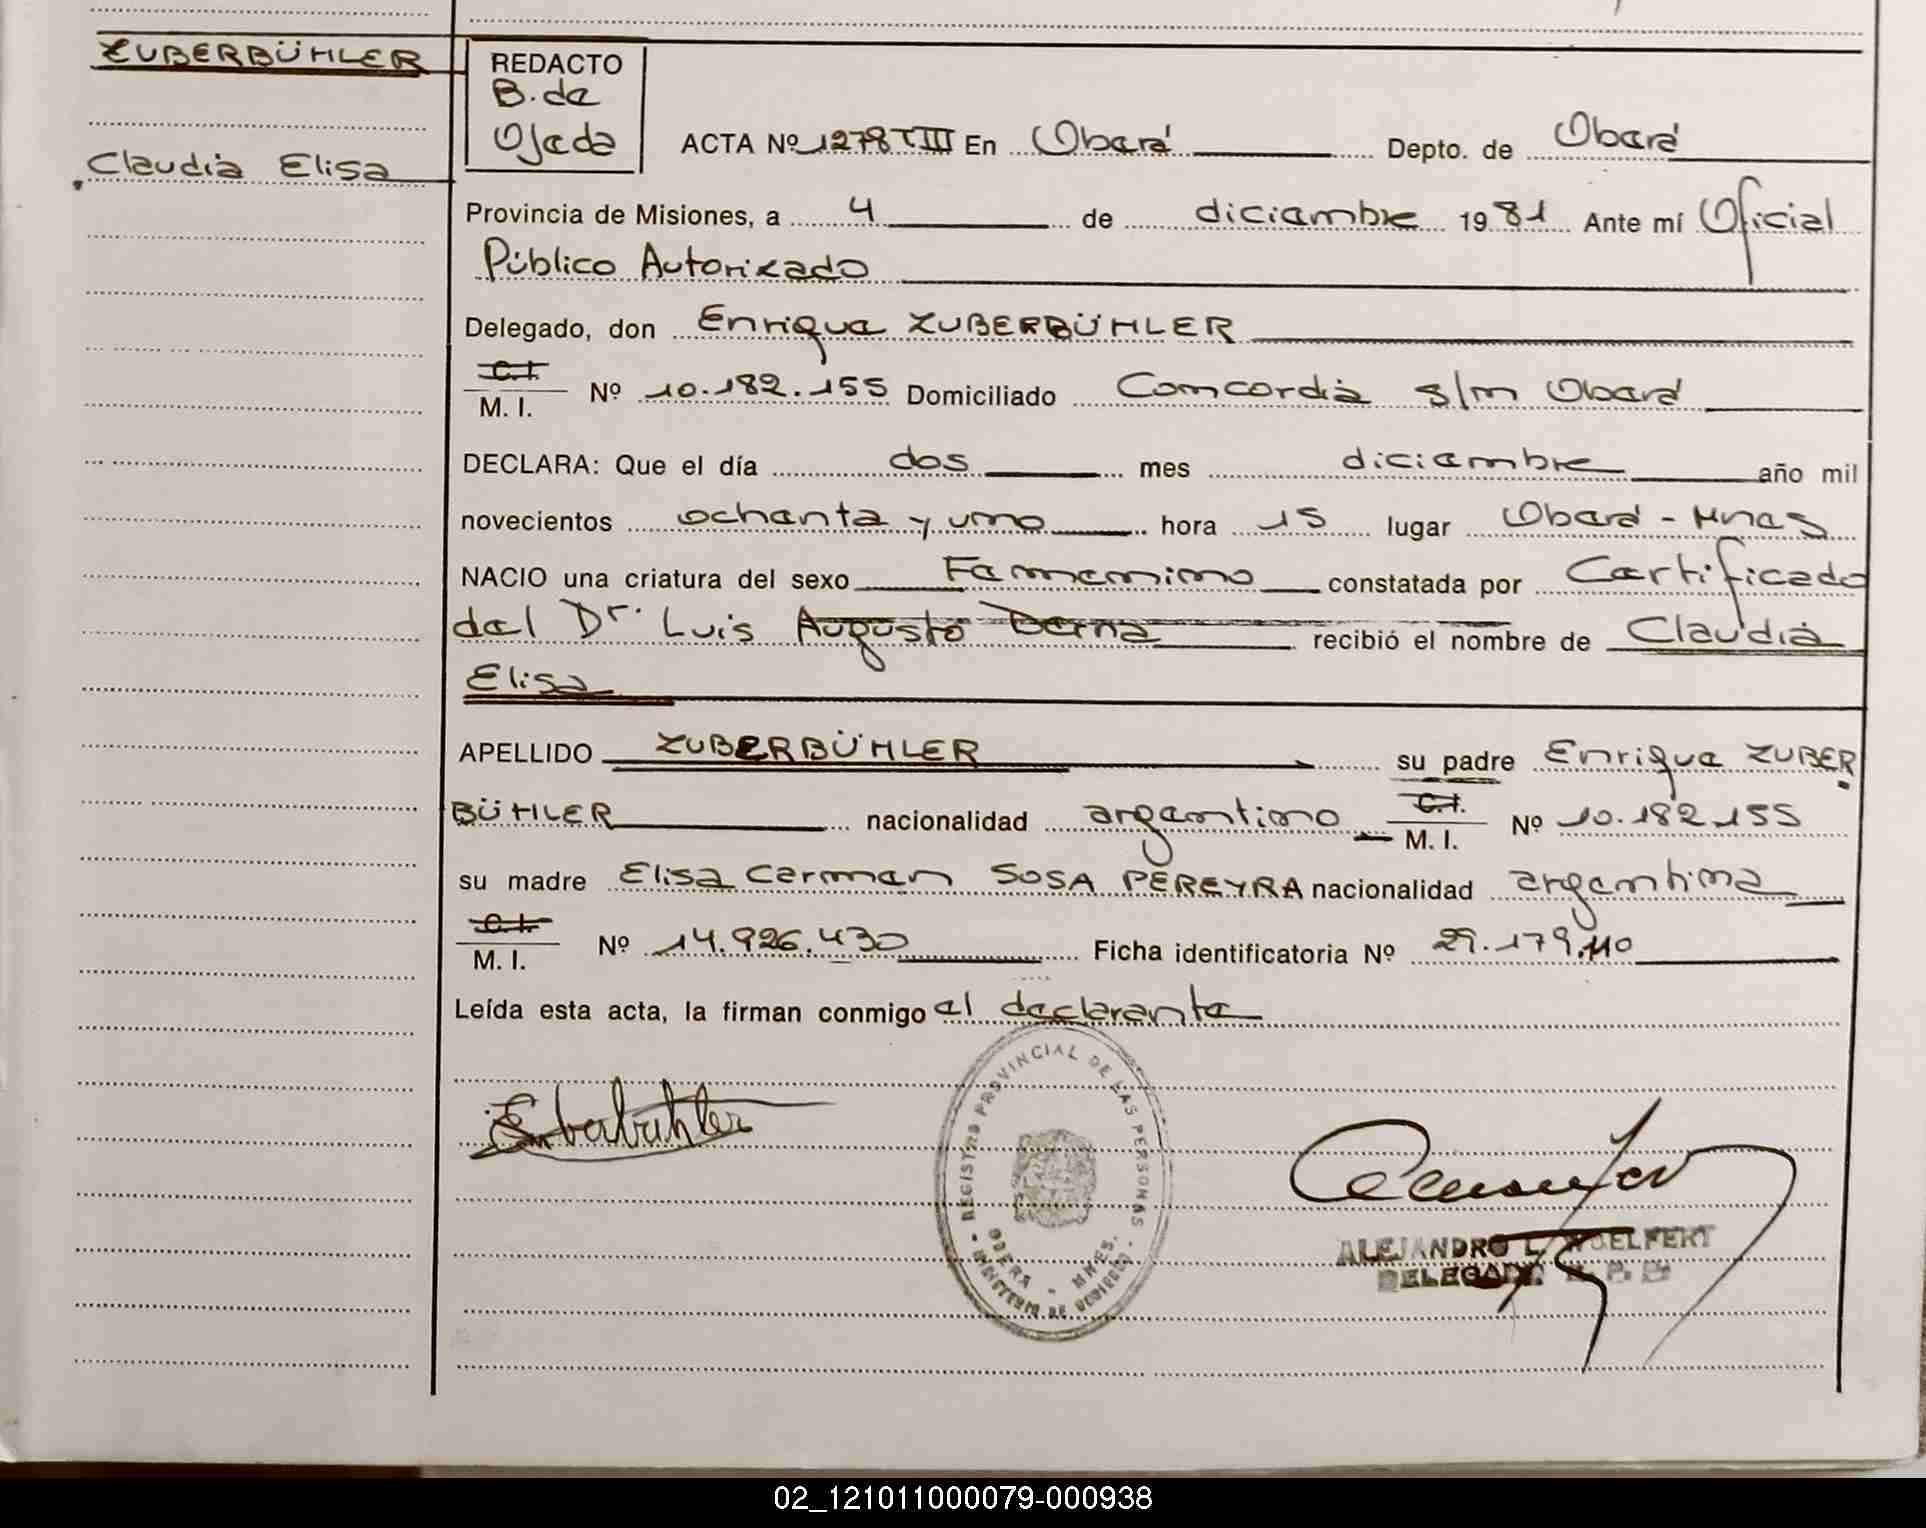 ZUBERBÜHLER
Claudia Elisa
REDACTO
B. de
Ojeda
ACTA Nº 1278 TIII En Oberá Depto. de Oberá
Provincia de Misiones, a 4 de diciembre 1981 Ante mí Oficial
Público Autorizado
Delegado, don Enrique ZUBERBÜHLER
C.I.
M. I. Nº 10.182.155 Domiciliado Concordia s/n Oberá
DECLARA: Que el día dos mes diciembre año mil
novecientos ochenta y uno hora 15 lugar Oberá - Mnes
NACIO una criatura del sexo Femenino constatada por Certificado
del Dr. Luis Augusto Derna recibió el nombre de Claudia
Elisa
APELLIDO ZUBERBÜHLER su padre Enrique ZUBER
BÜHLER nacionalidad argentino C.I. M. I. Nº 10.182.155
su madre Elisa Carmen SOSA PEREYRA nacionalidad argentina
C.I.
M. I. Nº 14.926.430 Ficha identificatoria Nº 29.179.110
Leída esta acta, la firman conmigo el declarante
REGISTRO PROVINCIAL DE LAS PERSONAS
OBERA - MNES.
MINISTERIO DE GOBIERNO
ALEJANDRO L. WOELFERT
DELEGADO
02_121011000079-000938